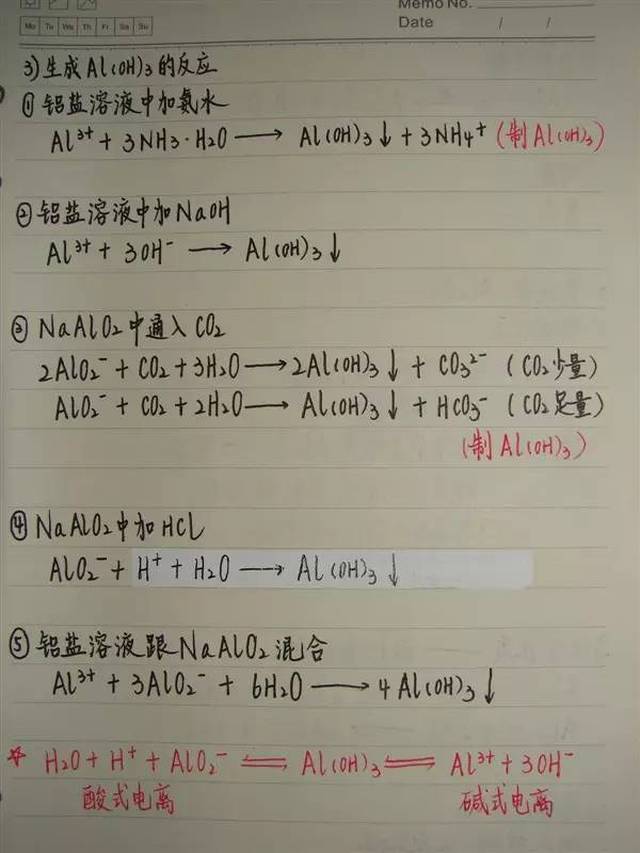 Memo No.
Mo Tu We Th Fr Sa Su
Date / /
3)生成Al(OH)₃的反应
①铝盐溶液中加氨水
Al³⁺ + 3NH₃·H₂O ⟶ Al(OH)₃↓ + 3NH₄⁺ (制Al(OH)₃)
②铝盐溶液中加NaOH
Al³⁺ + 3OH⁻ ⟶ Al(OH)₃↓
③ NaAlO₂中通入CO₂
2AlO₂⁻ + CO₂ + 3H₂O ⟶ 2Al(OH)₃↓ + CO₃²⁻ (CO₂少量)
AlO₂⁻ + CO₂ + 2H₂O ⟶ Al(OH)₃↓ + HCO₃⁻ (CO₂足量)
(制Al(OH)₃)
④ NaAlO₂中加HCl
AlO₂⁻ + H⁺ + H₂O ⟶ Al(OH)₃↓
⑤铝盐溶液跟NaAlO₂混合
Al³⁺ + 3AlO₂⁻ + 6H₂O ⟶ 4Al(OH)₃↓
☆ H₂O + H⁺ + AlO₂⁻ ⇌ Al(OH)₃ ⇌ Al³⁺ + 3OH⁻
酸式电离 碱式电离